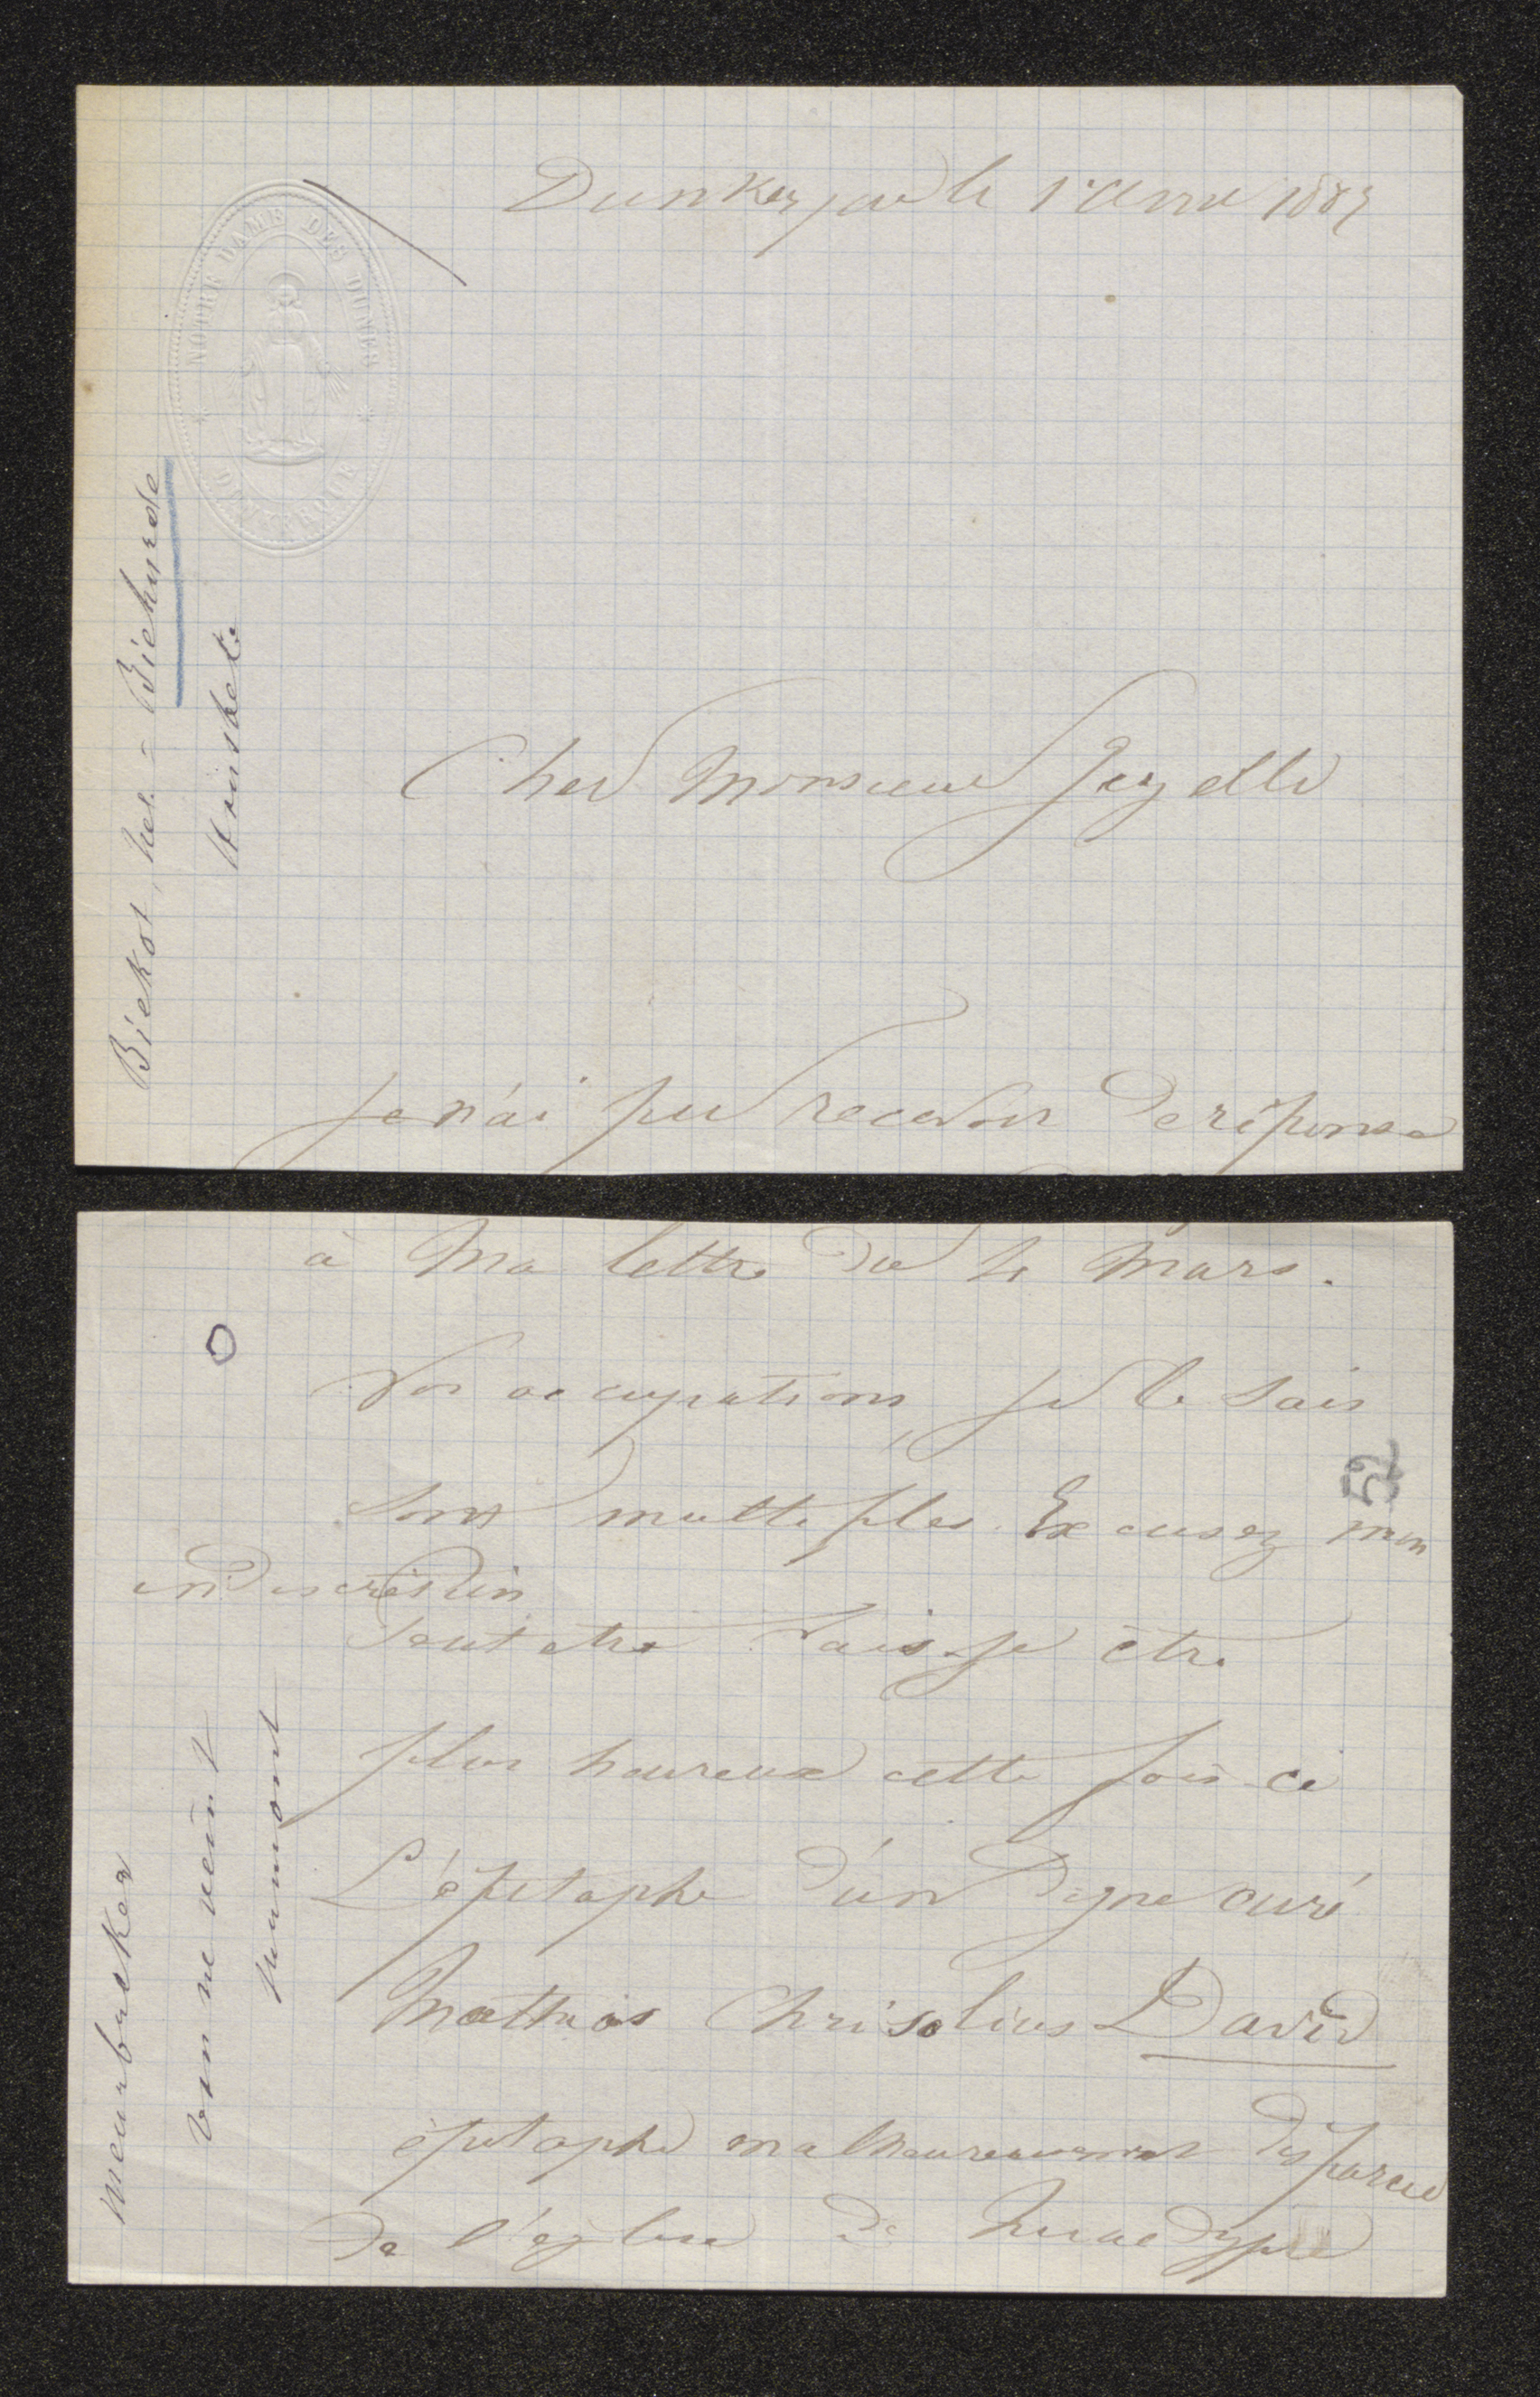 Dunkerque le 1r Avril 1887
NOTRE DAME DES DUNES
DUNKERQUE
Cher Monsieur Gezelle
Je n'ai pu recevoir de réponse
Biekot, het = Biehurde
Honskote
à ma lettre du 4 mars.
Vos occupations, je le sais
sont multiples. Excusez mon
indiscrétion
Peut etre vais-je être
plus heureux cette fois-ci
L'épitaphe d'un digne curé
Mathias Chrisolius David
épitaphe malheureusement disparue
de l'église de Quaedypre
52
meurbueker
van ne veint